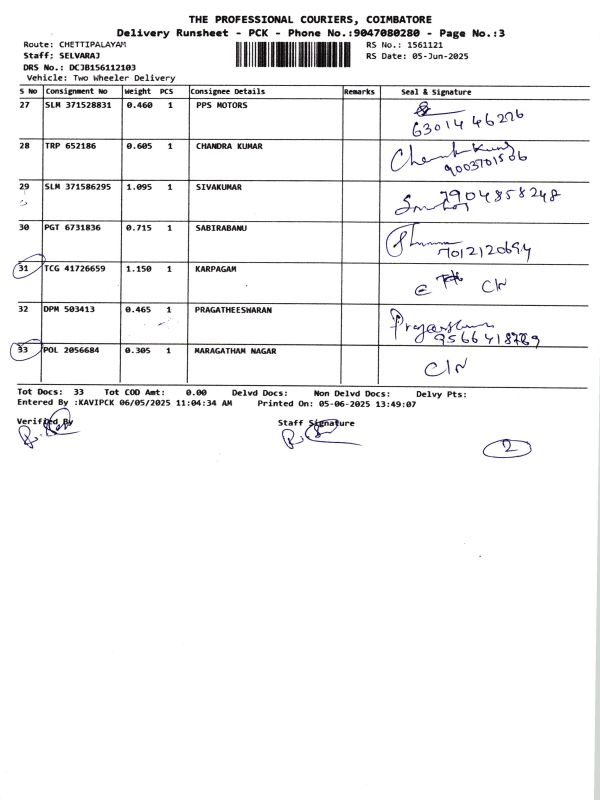 THE PROFESSIONAL COURIERS, COIMBATORE
Delivery Runsheet - PCK - Phone No.:9047080280 - Page No.:3
Route: CHETTIPALAYAM RS No.: 1561121
Staff: SELVARAJ RS Date: 05-Jun-2025
DRS No.: DCJB156112103
Vehicle: Two Wheeler Delivery
S No Consignment No Weight PCS Consignee Details Remarks Seal & Signature
27 SLM 371528831 0.460 1 PPS MOTORS
6301446226
28 TRP 652186 0.605 1 CHANDRA KUMAR
9003701506
29 SLM 371586295 1.095 1 SIVAKUMAR 7904858248
30 PGT 6731836 0.715 1 SABIRABANU
7012120694
31 TCG 41726659 1.150 1 KARPAGAM
32 DPM 503413 0.465 1 PRAGATHEESWARAN
33 POL 2056684 0.305 1 MARAGATHAM NAGAR
C/N
Tot Docs: 33 Tot COD Amt: 0.00 Delvd Docs: Non Delvd Docs: Delvy Pts:
Entered By :KAVIPCK 06/05/2025 11:04:34 AM Printed On: 05-06-2025 13:49:07
Verified By Staff Signature
2